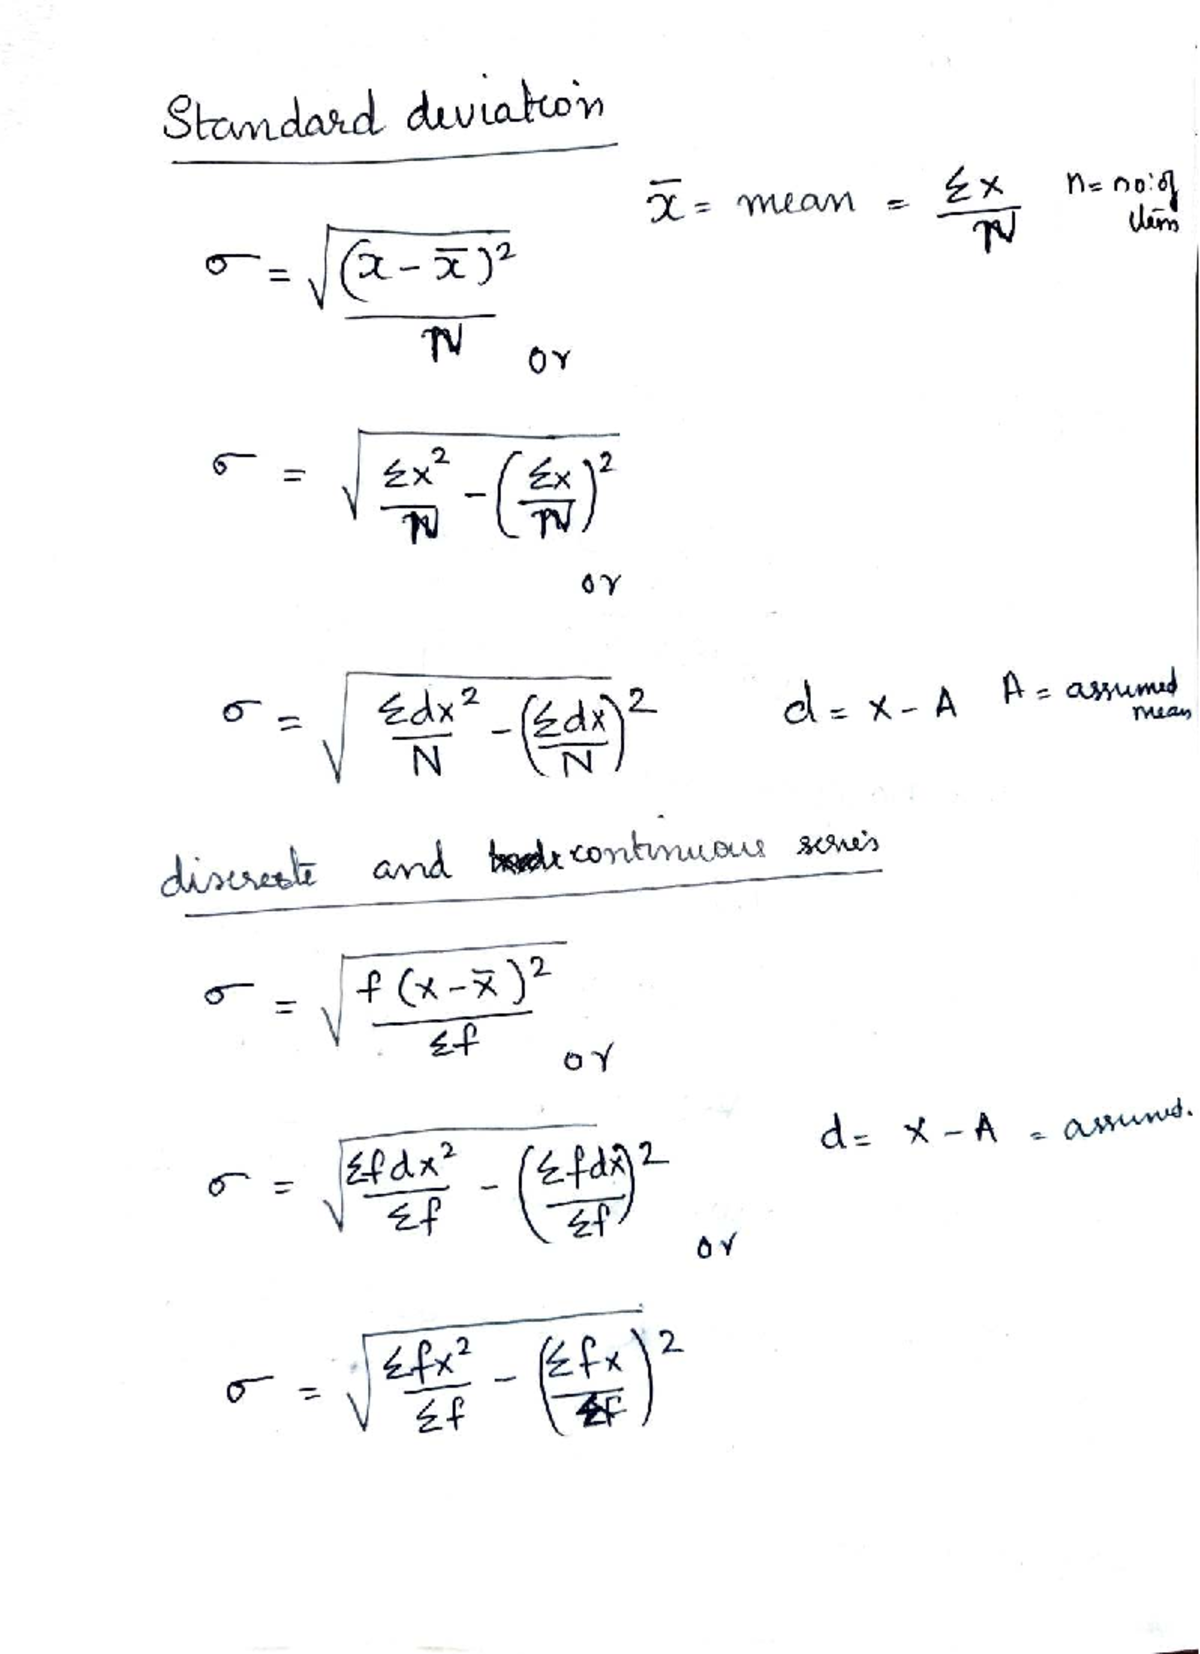 Standard deviation
x̄ = mean = Σx/N n = no: of items
σ = √(x - x̄)²/N or
σ = √Σx²/N - (Σx/N)²
or
σ = √Σdx²/N - (Σdx/N)² d = x - A A = assumed mean
discrete and continuous series
σ = √f(x - x̄)²/Σf or
σ = √Σfdx²/Σf - (Σfdx/Σf)² d = x - A = assumed.
or
σ = √Σfx²/Σf - (Σfx/Σf)²